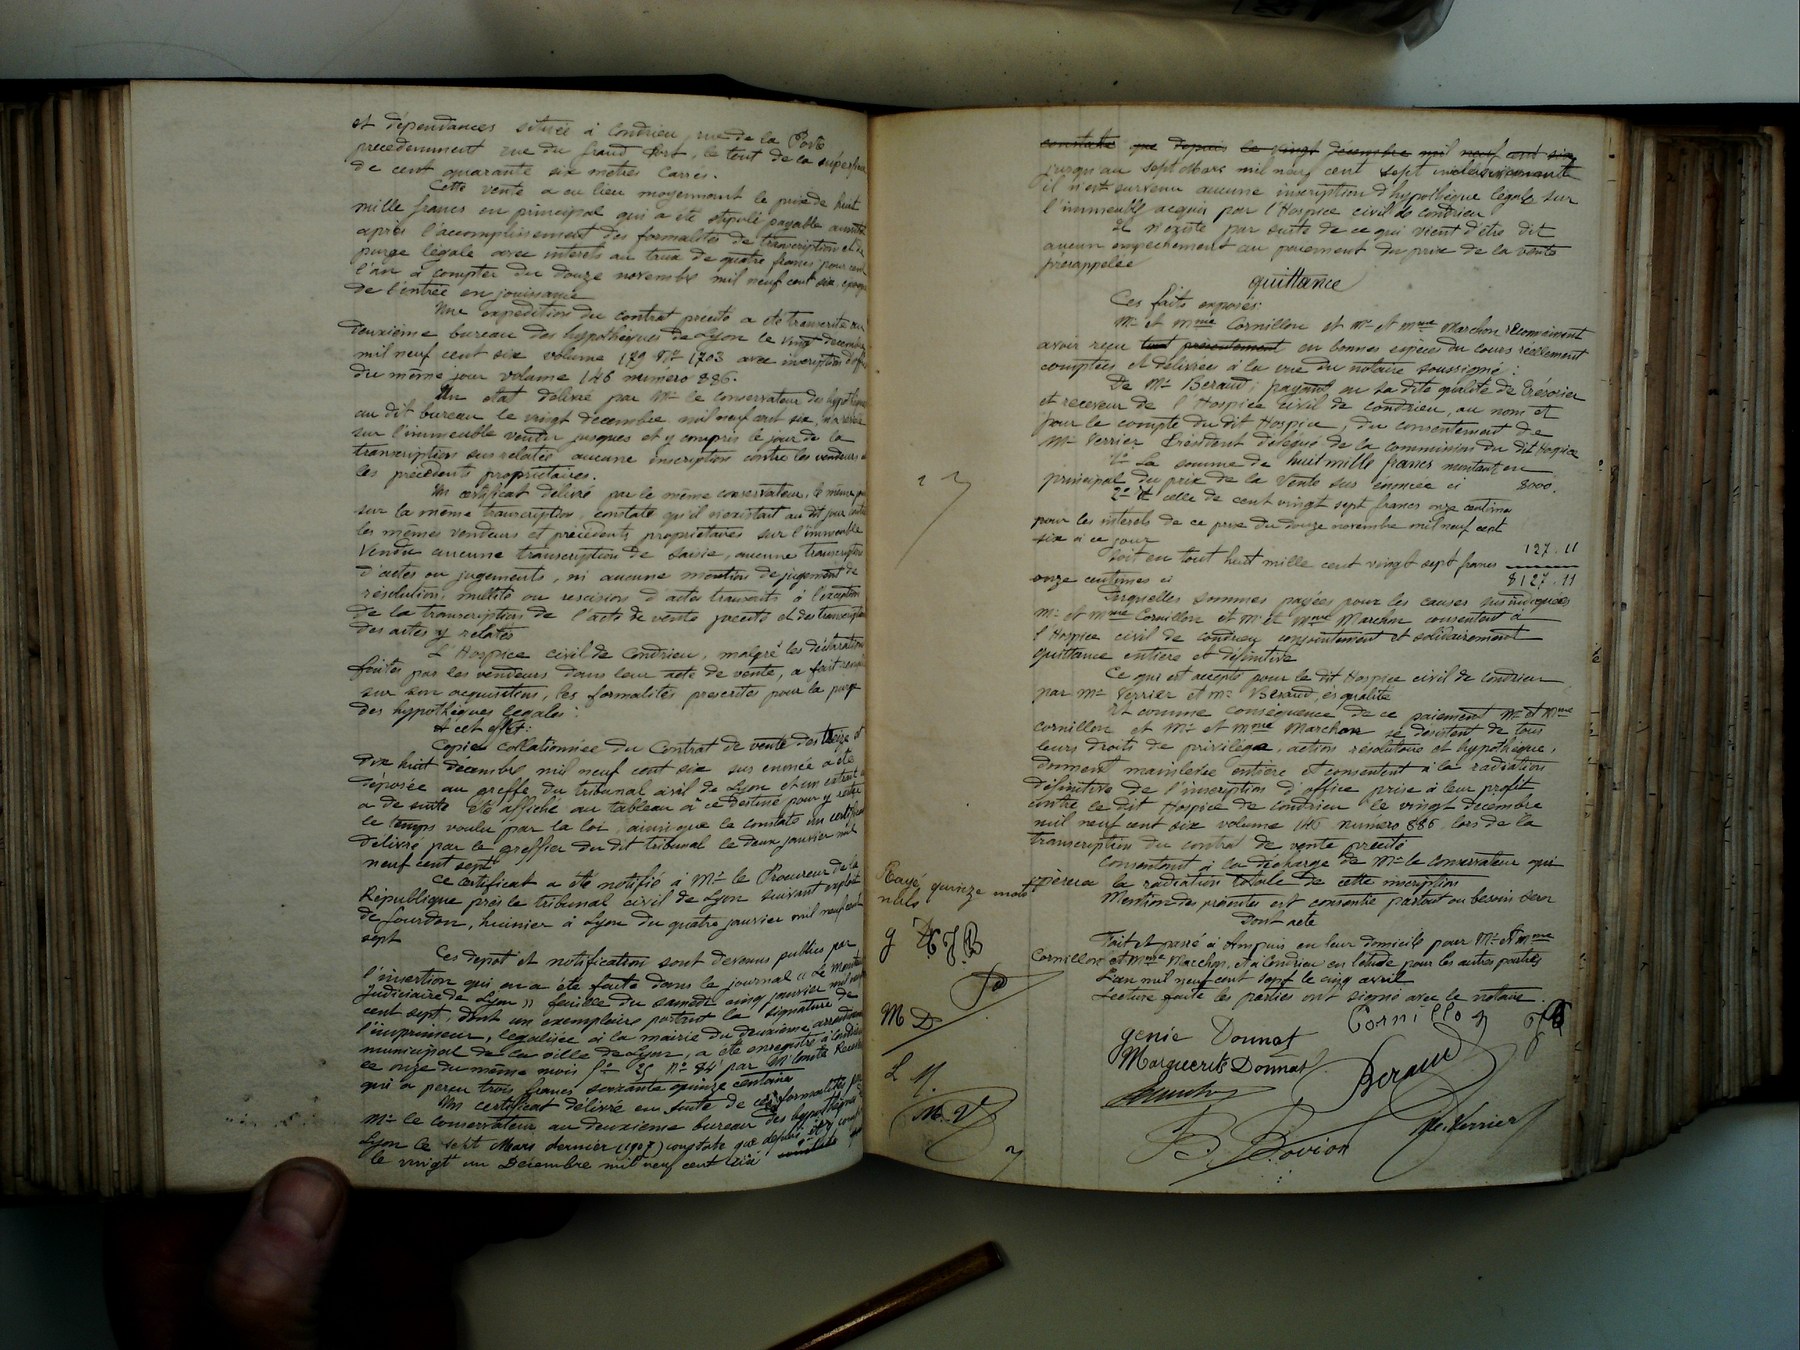 et dépendances située à Condrieu, rue de la Porte
précédemment rue du Grand Port, le tout de la superficie
de cent quarante six mètres carrés.
Cette vente a eu lieu moyennant le prix de huit
mille francs en principal qui a été stipulé payable aussitôt
après l'accomplissement des formalités de transcription et de
purge légale avec intérêts au taux de quatre francs pour cent
l'an à compter du douze novembre mil neuf cent six, époque
de l'entrée en jouissance
Une expédition du contrat précité a été transcrite au
deuxième bureau des hypothèques de Lyon le vingt décembre
mil neuf cent six volume 179 No 1703 avec inscription d'office
du même jour volume 146 numéro 886.
Un état délivré par Mr le conservateur des hypothèques
au dit bureau le vingt décembre mil neuf cent six, n'a révélé
sur l'immeuble vendu jusques et y compris le jour de la
transcription sus relatée aucune inscription contre les vendeurs
les précédents propriétaires.
Un certificat délivré par le même conservateur, le même jour
sur la même transcription, constate qu'il n'existait au dit jour contre
les mêmes vendeurs et précédents propriétaires sur l'immeuble
vendu aucune transcription de saisie, aucune transcription
d'actes ou jugements, ni aucune mention de jugement de
résolution, nullité ou rescision d'actes transcrits à l'exception
de la transcription de l'acte de vente précité et des transcriptions
des actes y relatés
L'Hospice civil de Condrieu, malgré les déclarations
faites par les vendeurs dans leur acte de vente, a fait remplir
sur son acquisition, les formalités prescrites pour la purge
des hypothèques légales :
A cet effet :
Copie collationnée du contrat de vente des treize et
dix huit décembre mil neuf cent six sus énoncé a été
déposée au greffe du tribunal civil de Lyon et un extrait
a de suite été affiché au tableau à ce destiné pour y rester
le temps voulu par la loi, ainsi que le constate un certificat
délivré par le greffier du dit tribunal le deux janvier mil
neuf cent sept
Ce certificat a été notifié à Mr le Procureur de la
République près le tribunal civil de Lyon suivant exploit
de Gourdon, huissier à Lyon du quatre janvier mil neuf cent
sept
Ces dépôt et notification sont devenus publics par
l'insertion qui en a été faite dans le journal " Le Moniteur
judiciaire de Lyon " feuille du samedi cinq janvier mil neuf
cent sept, dont un exemplaire portant la signature de
l'imprimeur, légalisée à la mairie du deuxième arrondissement
municipal de la ville de Lyon, a été enregistré à Condrieu
le onze du même mois fo 25 No 84 par Mr Receveur
qui a perçu trois francs soixante quinze centimes
Un certificat délivré en suite de ces formalités par
Mr le conservateur au deuxième bureau des hypothèques
Lyon le sept Mars dernier (1907) constate que depuis
le vingt un Décembre mil neuf cent six constate que
constate que depuis le vingt décembre mil neuf cent six
jusqu'au sept Mars mil neuf cent sept inclusivement
il n'est survenu aucune inscription d'hypothèque légale sur
l'immeuble acquis par l'Hospice civil de Condrieu
Il n'existe par suite de ce qui vient d'être dit
aucun empêchement au paiement du prix de la vente
prérappelée
quittance
Ces faits exposés
Mr et Mme Cornillon et Mr et Mme Marchon reconnaissent
avoir reçu tout présentement en bonnes espèces du cours réellement
comptées et délivrées à la vue du notaire soussigné :
De Mr Beraud, payant en sa dite qualité de trésorier
et receveur de l'Hospice civil de Condrieu, au nom et
pour le compte du dit Hospice, du consentement de
Mr Verrier Président délégué de la commission du dit Hospice
1o La somme de huit mille francs montant en
principal du prix de la vente sus énoncée ci 8000.
2o Et celle de cent vingt sept francs onze centimes
pour les intérêts de ce prix du douze novembre mil neuf cent
six à ce jour 127.11
Soit en tout huit mille cent vingt sept francs
onze centimes ci 8127.11
Lesquelles sommes payées pour les causes sus indiquées
Mr et Mme Cornillon et Mr et Mme Marchon consentent à
l'Hospice civil de Condrieu conjointement et solidairement
quittance entière et définitive
Ce qui est accepté pour le dit Hospice civil de Condrieu
par Mr Verrier et Mr Beraud, ès qualité
Et comme conséquence de ce paiement Mr et Mme
Cornillon et Mr et Mme Marchon se désistent de tous
leurs droits de privilège, action résolutoire et hypothèque,
donnent mainlevée entière et consentent à la radiation
définitive de l'inscription d'office prise à leur profit
contre le dit Hospice de Condrieu le vingt décembre
mil neuf cent six volume 146 numéro 886, lors de la
transcription du contrat de vente précité
Consentant à la décharge de Mr le Conservateur qui
opérera la radiation totale de cette inscription
Mention des présentes est consentie partout ou besoin sera
Dont acte
Fait et passé à Ampuis en leur domicile pour Mr et Mme
Cornillon et Mme Marchon, et à Condrieu en l'étude pour les autres parties
L'an mil neuf cent sept le cinq avril
Lecture faite les parties ont signé avec le notaire.
Rayé quinze mots
nuls
g D C J B
M D
L M.
M. V
Cornillon J B
genie Donnat
Marguerite Donnat
Beraud
M. Verrier
B. Bovion